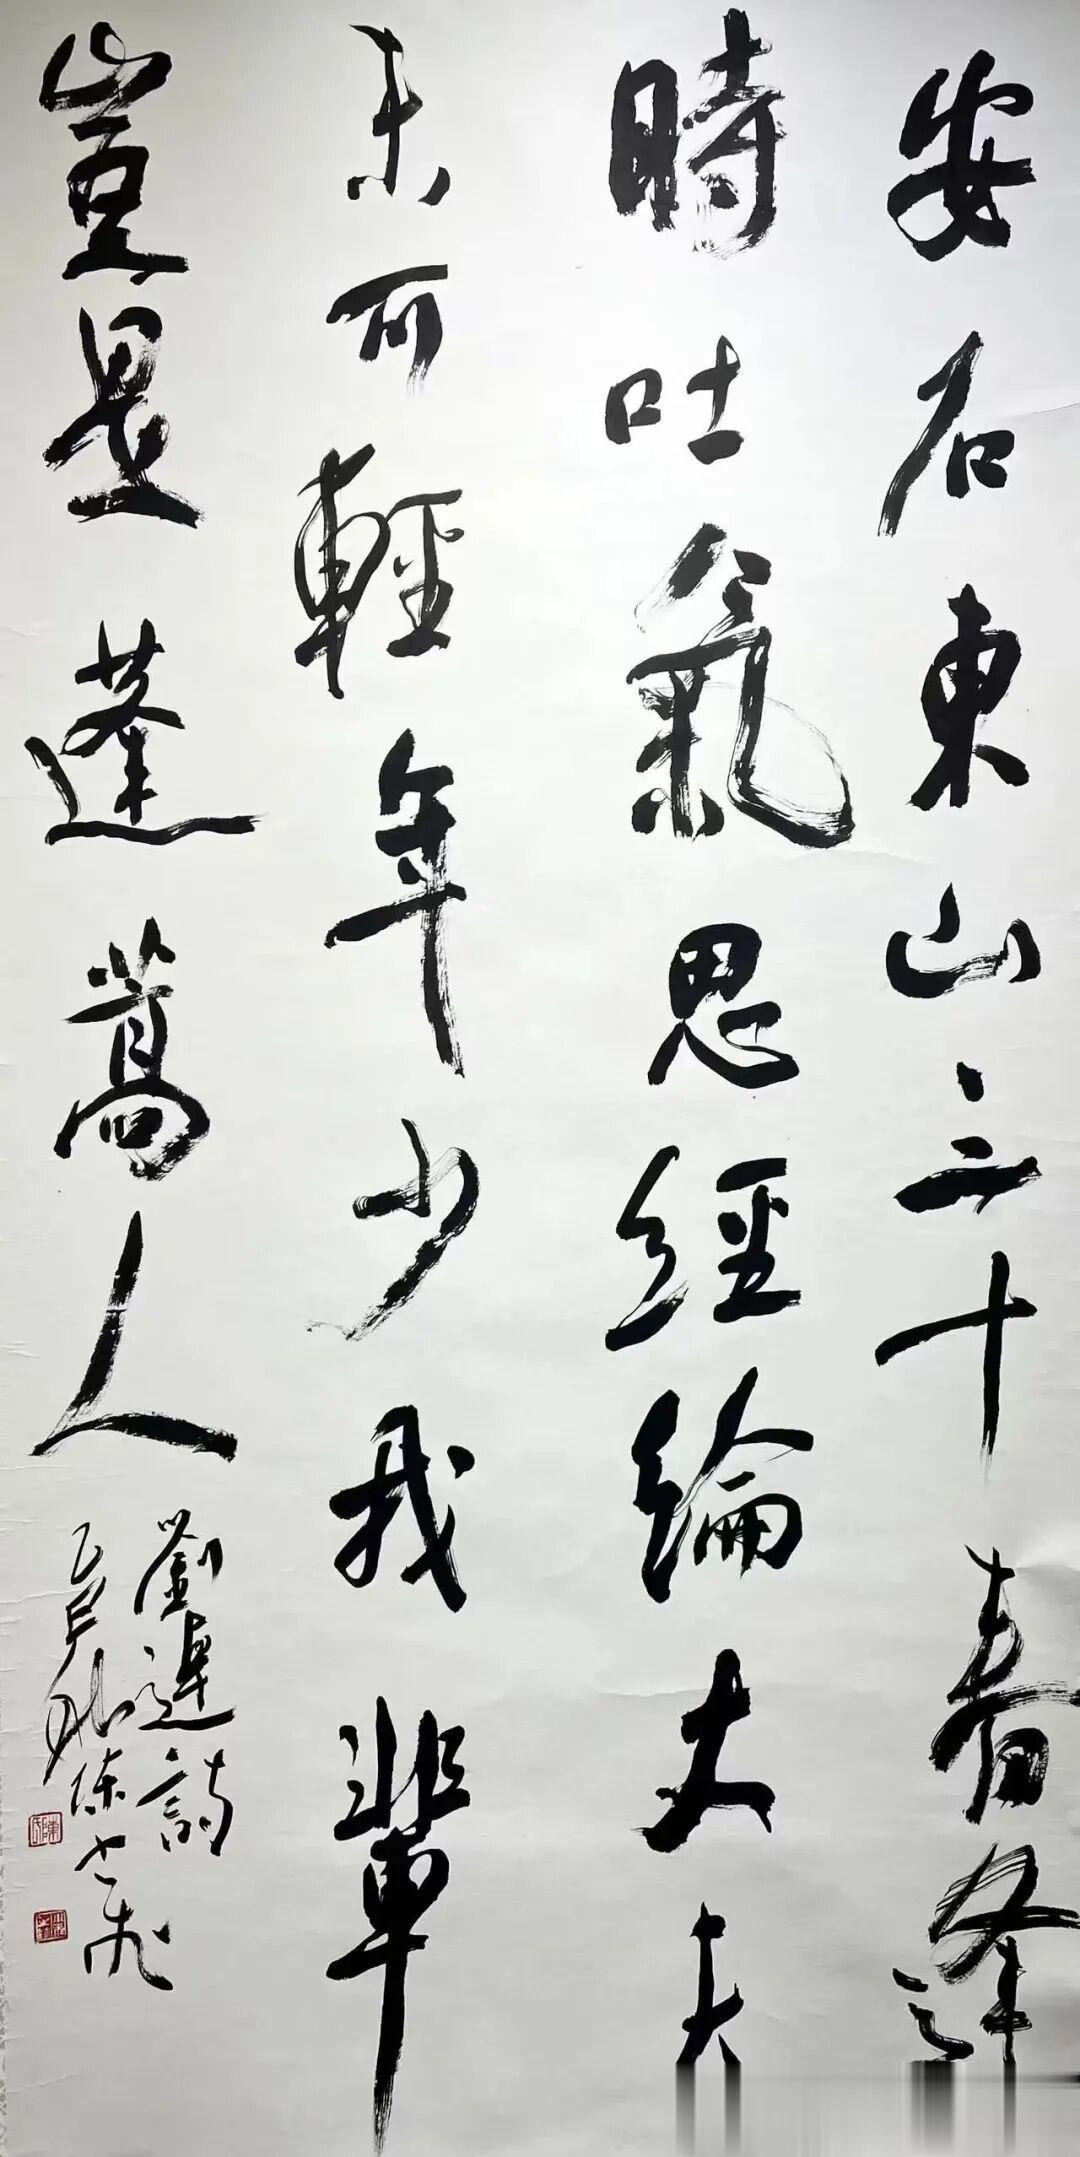 安石東山三十春逢
時吐氣思經綸丈夫
未可輕年少我輩
豈是蓬蒿人
劉遲詩
乙巳秋陳